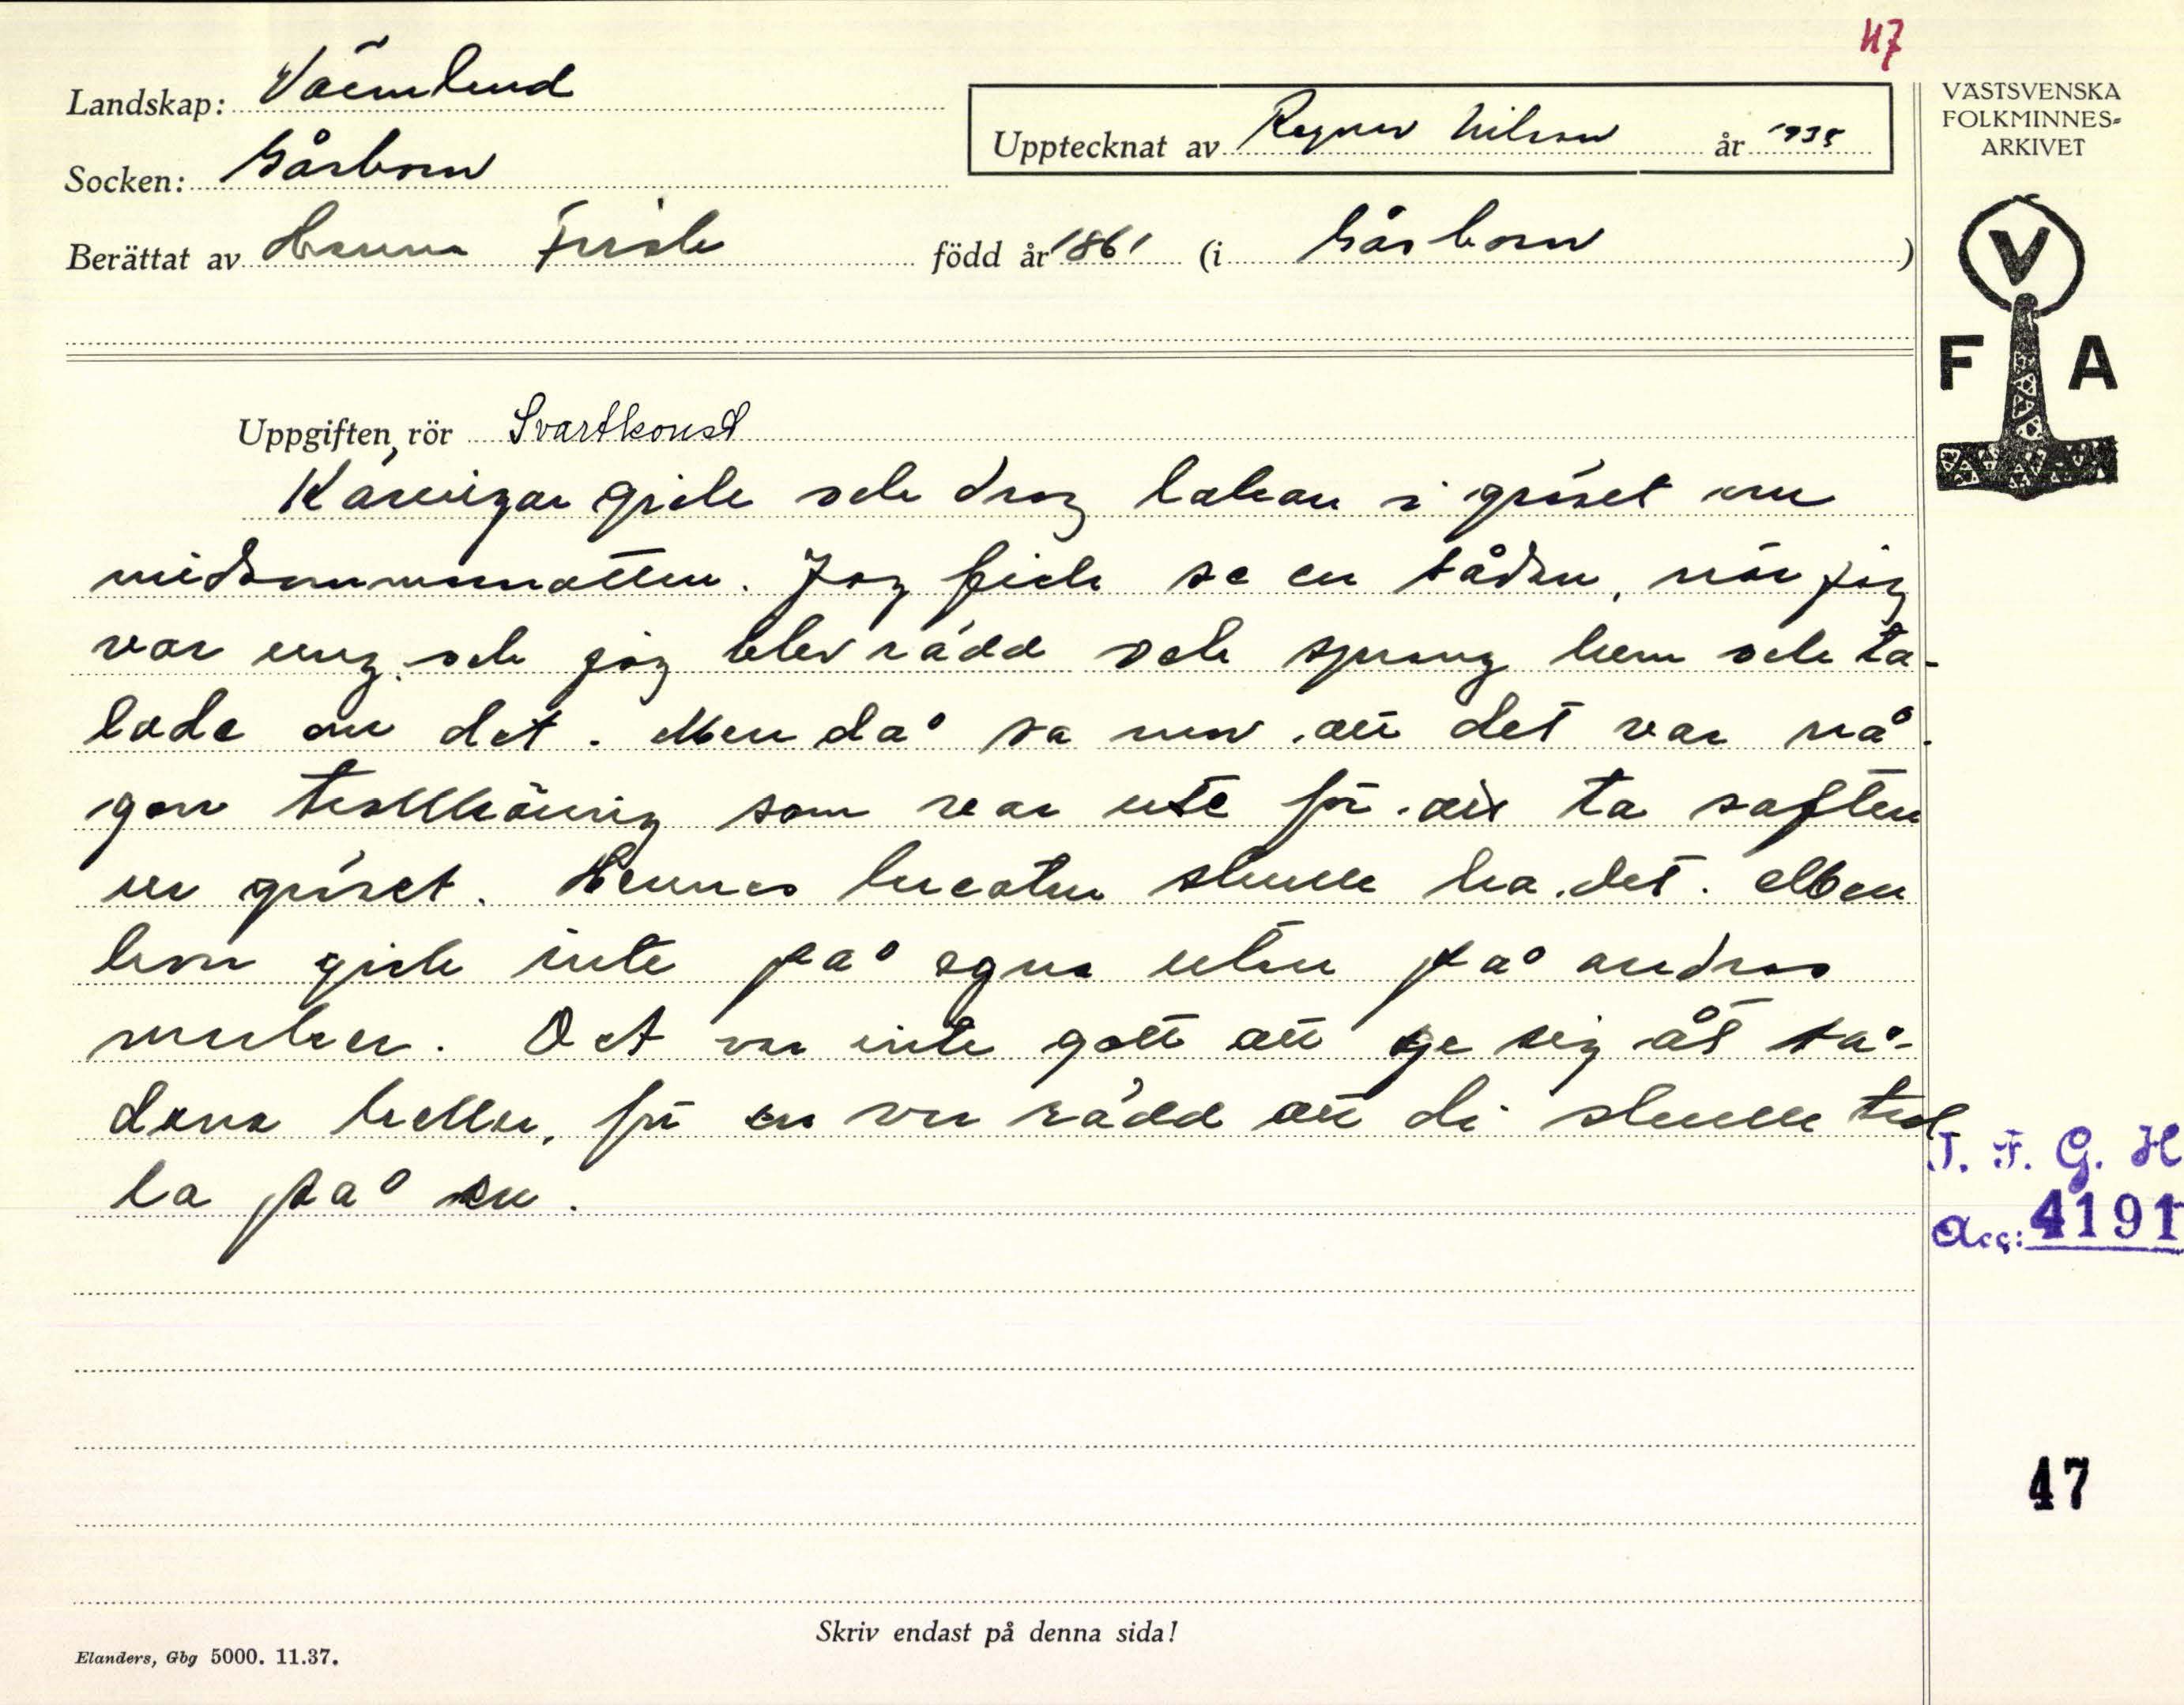 47
Landskap: Värmland
Socken: Gåsborn
Upptecknat av Ragnar Nilsson år 1938
Berättat av Hanna Frisk född år 1861 (i Gåsborn)
VÄSTSVENSKA
FOLKMINNES-
ARKIVET
V
F A
Uppgiften, rör Svartkonst
Käringar gick och drog lakan i gräset om
midsommarnatten. Jag fick se en sådan, när jag
var ung, och jag blev rädd och sprang hem och ta-
lade om det. Men då sa mor att det var nå-
gon trollkäring som var ute för att ta saften
ur gräset. Hennes kreatur skulle ha det. Men
hon gick inte på egna utan på andras
marker. Det var inte gott att ge sig åt så-
dana heller, för en var rädd att di skulle trol
la på en.
I. F. G. H
Acc: 4191
47
Skriv endast på denna sida!
Elanders, Gbg 5000. 11.37.